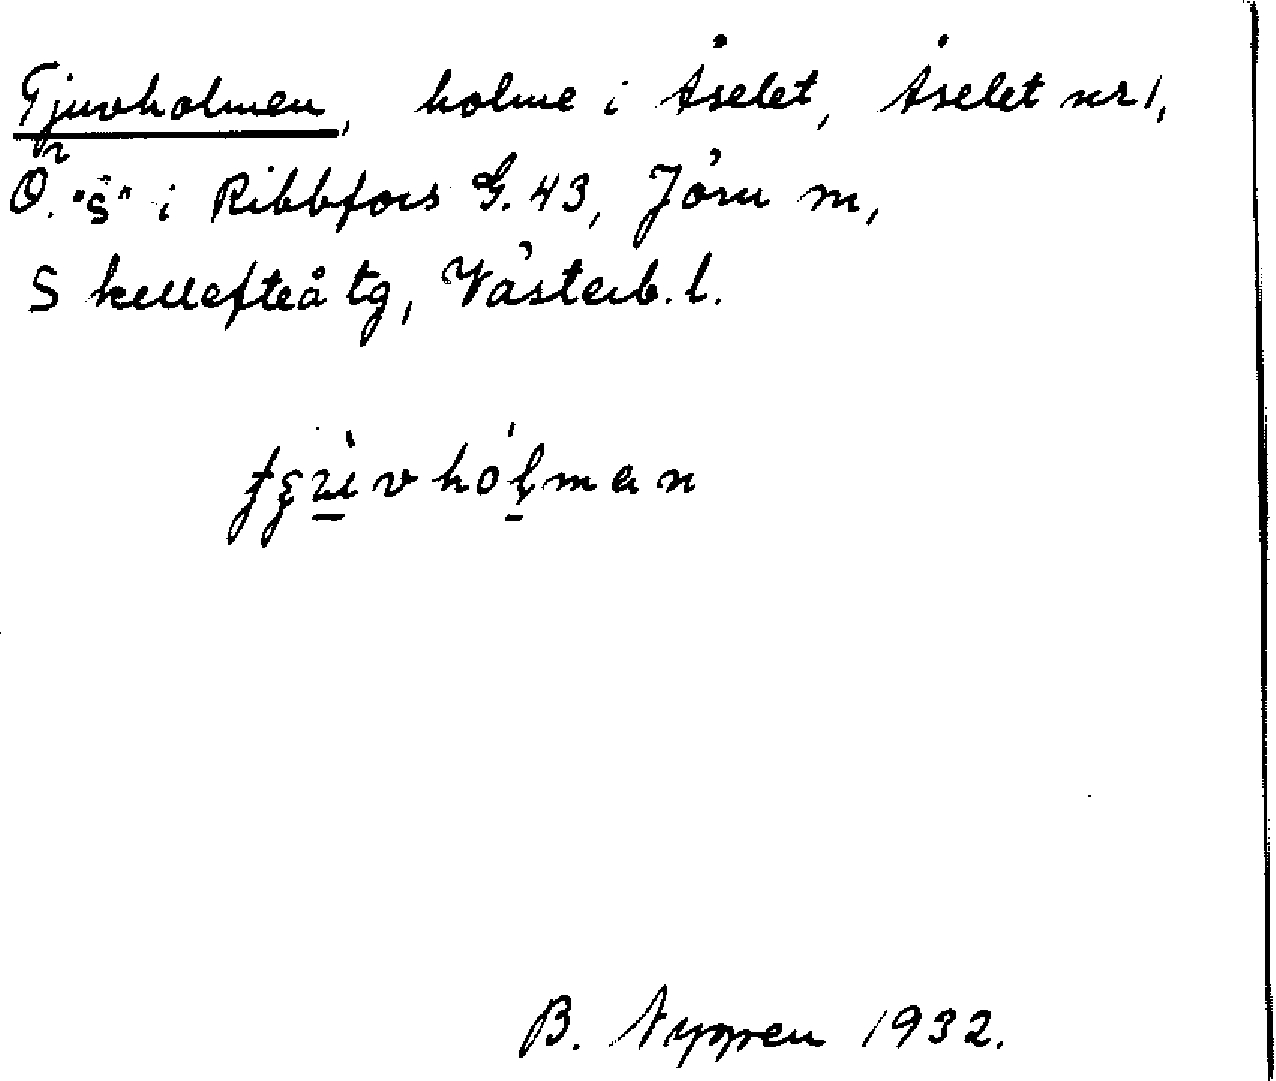 Tjuvholmen, holme i Åselet, Åselet nr 1,
Ö. "S" i Ribbfors G. 43, Jörn m,
Skellefteå tg, Västerb. l.
B. Nygren 1932.